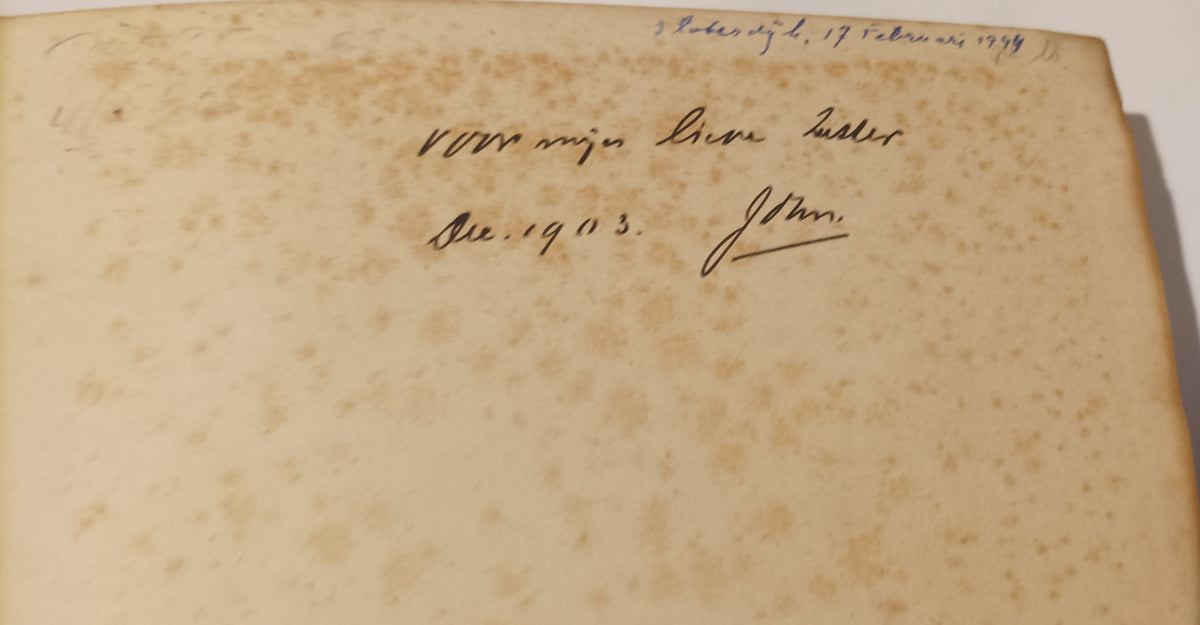 Sloterdijk, 17 Februari 1994
voor mijn lieve zuster
Dec. 1903. John.